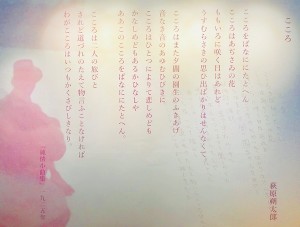 こころ
萩原朔太郎
こころをばなにたとへん
こころはあぢさゐの花
ももいろに咲く日はあれど
うすむらさきの思ひ出ばかりはせんなくて。
こころはまた夕闇の園生のふきあげ
音なき音のあゆむひびきに
こころはひとつによりて悲しめども
かなしめどもあるかひなしや
ああこのこころをばなににたとへん。
こころは二人の旅びと
されど道づれのたえて物言ふことなければ
わがこころはいつもかくさびしきなり。
『純情小曲集』一九二五年